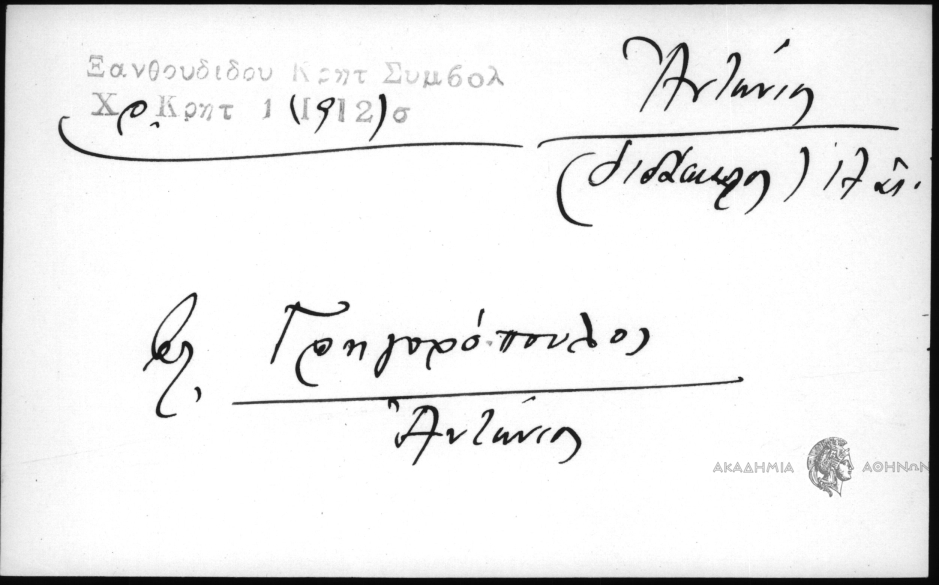 Ξανθουδιδου Κρητ Συμβολ
Χρ. Κρητ 1 (1912) σ
Ἀντώνιος
(διδάσκαλος) ιζ αἰ.
βλ. Γρηγορόπουλος
Ἀντώνιος
ΑΚΑΔΗΜΙΑ ΑΘΗΝΩΝ